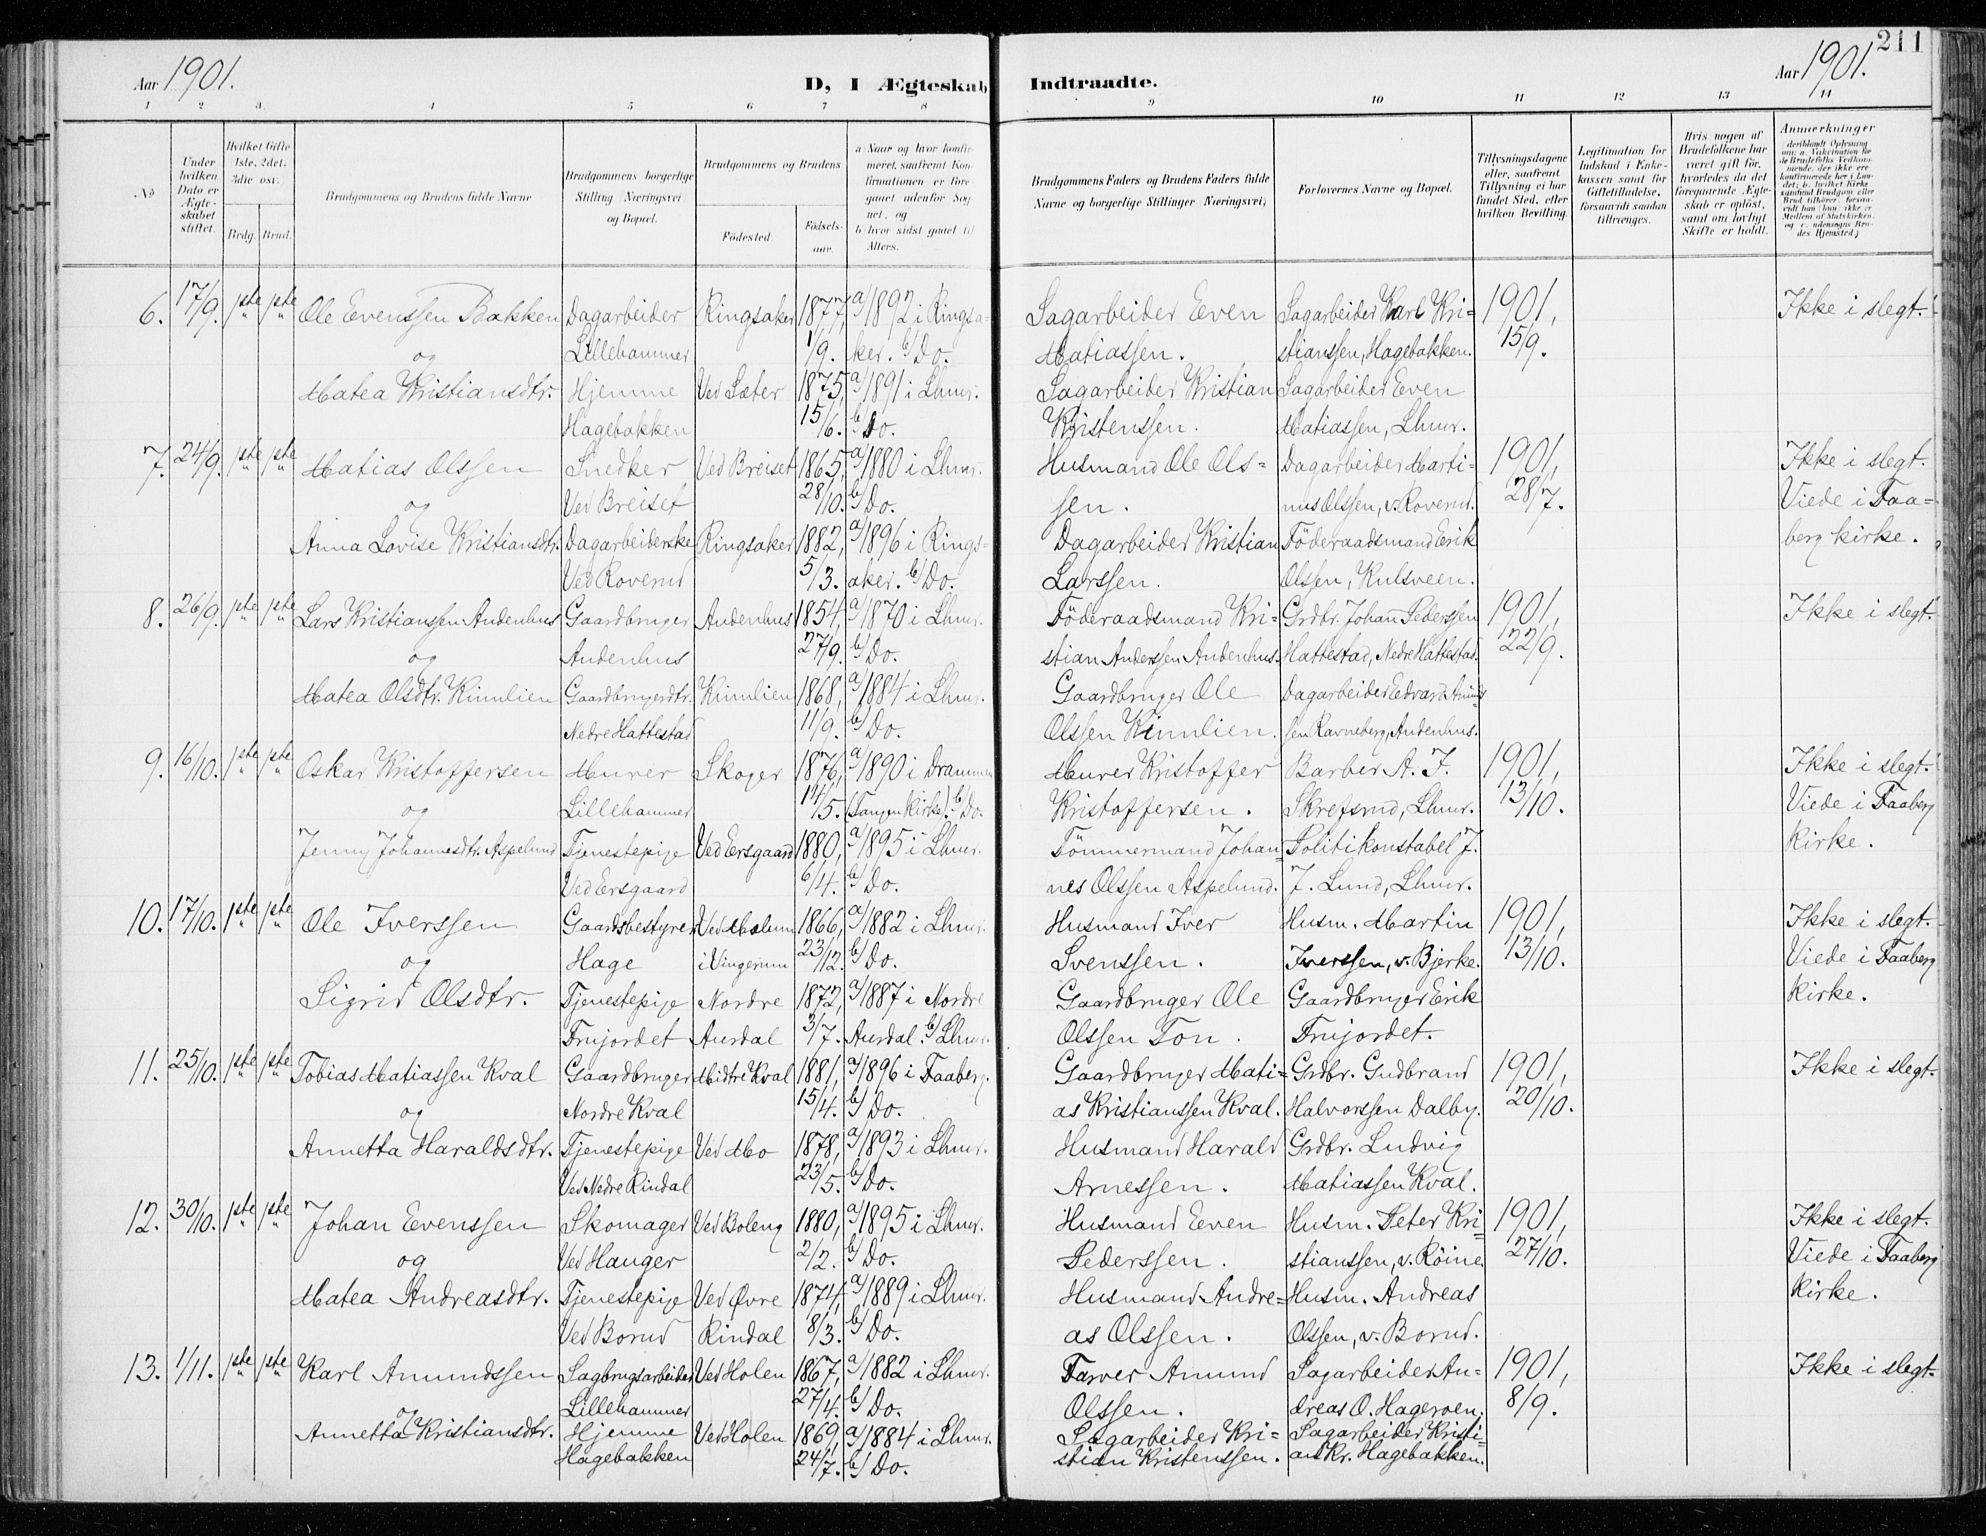 211
Aar 1901. D, I Ægteskab Indtraadte. Aar 1901.
1 2 3 4 5 6 7 8 9 10 11 12 13 14
No
Under hvilken Dato er Ægteskabet stiftet.
Hvilket Gifte 1ste, 2det, 3die osv.
Brdg. Brud.
Brudgommens og Brudens fulde Navne
Brudgommens borgerlige Stilling Næringsvei og Bopæl.
Brudgommens og Brudens
Fødested. Fødselsaar.
a) Naar og hvor konfirmeret, saafremt Konfirmationen er foregaaet udenfor Sognet, og
b) hvor sidst gaaet til Alters.
Brudgommens Faders og Brudens Faders fulde Navne og borgerlige Stillinger Næringsvei,
Forlovernes Navne og Bopæl.
Tillysningsdagene eller, saafremt Tillysning ei har fundet Sted, efter hvilken Bevilling.
Legitimation for Indskud i Enkekassen samt for Giftetilladelse, forsaavidt saadan tiltrænges.
Hvis nogen af Brudefolkene har været gift før, hvorledes da det foregaaende Ægteskab er opløst, samt om lovligt Skifte er holdt.
Anmerkninger
deriblandt Oplysning om: a. Vakcination for de Brudefolks Vedkommende, der ikke ere konfirmerede her i Landet; b. hvilket Kirkesamfund Brudgom eller Brud tilhører, forsaavidt han/hun ikke er Medlem af Statskirken, og c. udensogns Brudes Hjemsted.
6. 17/9. 1ste 1ste Ole Evenssen Bakken Dagarbeider Ringsaker 1877, a/1892 i Ringsa- Sagarbeider Even Sagarbeider Karl Kri- 1901, Ikke i slegt.
og Lillehammer 1/9. ker. b/Do. Matiassen. stianssen, Hagebakken. 15/9.
Matea Kristiansdtr. Hjemme Ved Sæter 1875, a/1891 i Lhmr. Sagarbeider Kristian Sagarbeider Even
Hagebakken 15/6. b/Do. Kristenssen. Matiassen, Lhmr.
7. 24/9. 1ste 1ste Matias Olssen Snedker Ved Breiset 1865, a/1880 i Lhmr. Husmand Ole Ols- Dagarbeider Marti- 1901, Ikke i slegt.
og Ved Breiset 28/10. b/Do. sen. nus Olssen, v. Roverud. 28/7. Viede i Faa-
Anna Lovise Kristiansdtr. Dagarbeiderske Ringsaker 1882, a/1896 i Rings- Dagarbeider Kristian Föderaadsmand Erik berg kirke.
Ved Roverud 5/3. aker. b/Do. Larssen. Olssen, Kulsveen.
8. 26/9. 1ste 1ste Lars Kristianssen Audenhus Gaardbruger Audenhus 1854, a/1870 i Lhmr. Föderaadsmand Kri- Grdbr. Johan Pederssen 1901, Ikke i slegt.
og Audenhus 27/9. b/Do. stian Anderssen Audenhus. Hattestad, Nedre Hattestad. 22/9.
Matea Olsdtr. Kinnlien Gaardbrugerdtr. Kinnlien 1868, a/1884 i Lhmr. Gaardbruger Ole Dagarbeider Edvard Amund-
Nedre Hattestad 11/9. b/Do. Olssen Kinnlien. sen Ravneberg, Audenhus.
9. 16/10. 1ste 1ste Oskar Kristoffersen Murer Skoger 1876, a/1890 i Drammen Murer Kristoffer Barber A. J. 1901, Ikke i slegt.
og Lillehammer 14/5. (Tangen kirke). b/Do. Kristoffersen. Skrefsrud, Lhmr. 13/10. Viede i Faaberg
Jenny Johannesdtr. Aspelund Tjenestepige Ved Ersgaard 1880, a/1895 i Lhmr. Tömmermand Johan- Politikonstabel J. kirke.
Ved Ersgaard 6/4. b/Do. nes Olssen Aspelund. J. Lund, Lhmr.
10. 17/10. 1ste 1ste Ole Iverssen Gaardsbestyrer Ved Molum 1866, a/1882 i Lhmr. Husmand Iver Husm. Martin 1901, Ikke i slegt.
og Hage i Vingerum 23/12. b/Do. Svenssen. Iverssen, v. Bjerke. 13/10. Viede i Faaberg
Sigrid Olsdtr. Tjenestepige Nordre 1872, a/1887 i Nordre Gaardbruger Ole Gaardbruger Erik kirke.
Frujordet Aurdal 3/7. Aurdal. b/Lhmr. Olssen Ton. Frujordet.
11. 25/10. 1ste 1ste Tobias Matiassen Kval Gaardbruger Midtre Kval 1881, a/1896 i Faaberg. Gaardbruger Mati- Grdbr. Gudbrand 1901, Ikke i slegt.
og Nordre Kval 15/4. b/Do. as Kristianssen Kval. Halvorssen Dalby. 20/10.
Annetta Haraldsdtr. Tjenestepige Ved Mo 1878, a/1893 i Lhmr. Husmand Harald Grdbr. Ludvig
Ved Nedre Rindal 23/5. b/Do. Arnessen. Matiassen Kval.
12. 30/10. 1ste 1ste Johan Evenssen Skomager Ved Boleng 1880, a/1895 i Lhmr. Husmand Even Husm. Peter Kri- 1901, Ikke i slegt.
og Ved Hauger 2/2. b/Do. Pederssen. stianssen, v. Röine. 27/10. Viede i Faaberg
Matea Andreasdtr. Tjenestepige Ved Øvre 1874, a/1889 i Lhmr. Husmand Andre- Husm. Andreas kirke.
Ved Borud Rindal 8/3. b/Do. as Olssen. Olssen, v. Borud.
13. 1/11. 1ste 1ste Karl Amundssen Sagbrugsarbeider Ved Holen 1867, a/1882 i Lhmr. Farver Amund Sagarbeider An- 1901, Ikke i slegt.
og Lillehammer 27/4. b/Do. Olssen. dreas O. Hageroen. 8/9.
Annetta Kristiansdtr. Hjemme Ved Holen 1869, a/1884 i Lhmr. Sagarbeider Kri- Sagarbeider Kristi-
Hagebakken 24/7. b/Do. stian Kristenssen. an Kr. Hagebakken.